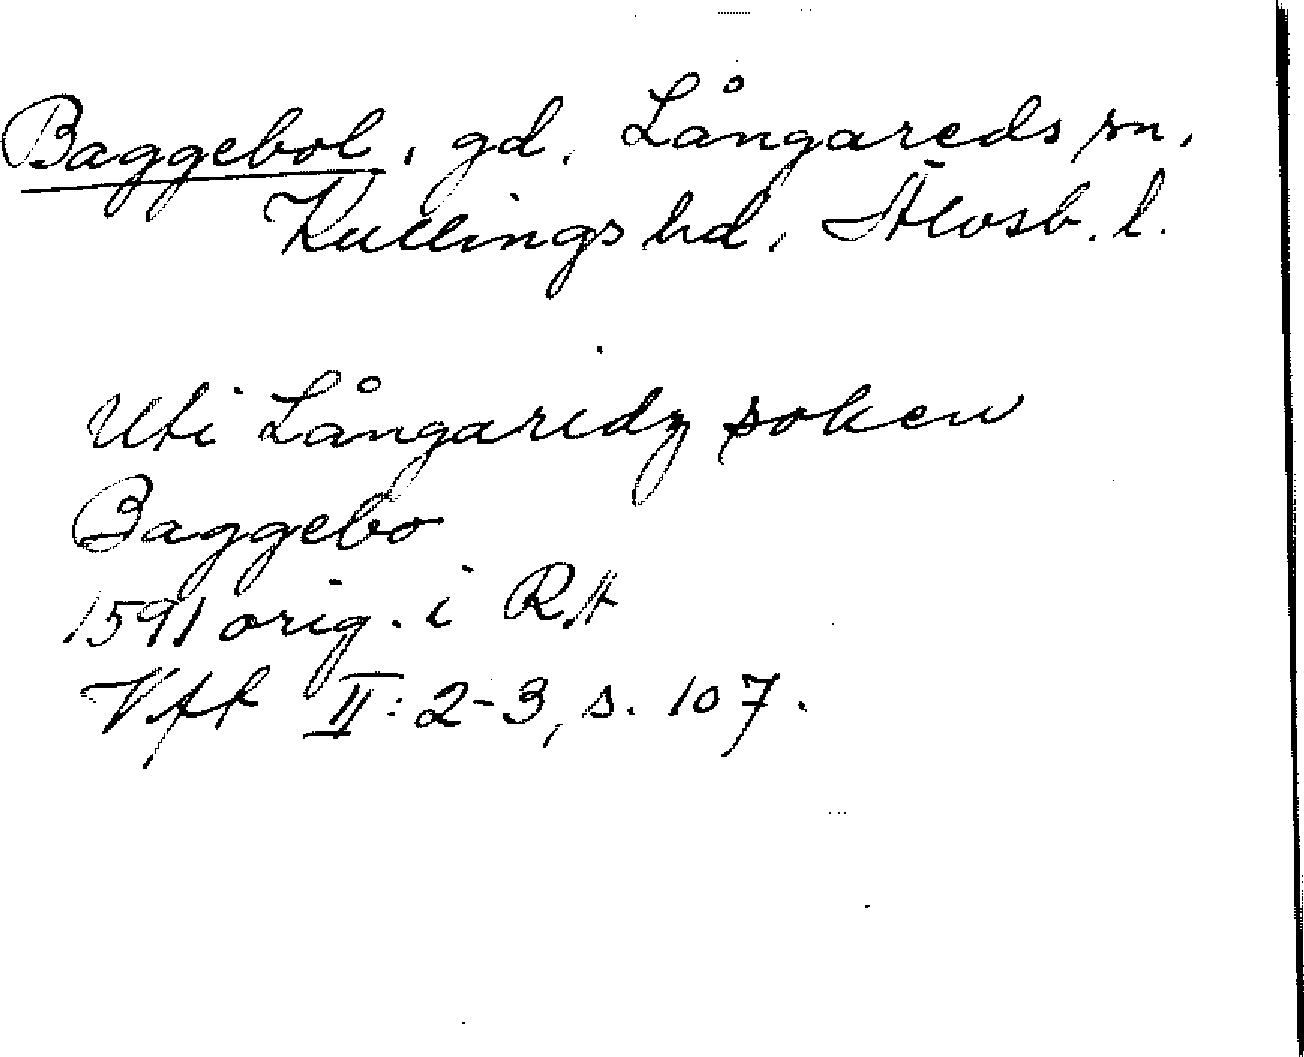 Baggebol, gd, Långareds sn,
Kullings hd, Älvsb. l.
Uti Långaredz soken
Baggebo
1591 orig. i RA
Vff II: 2-3, s. 107.